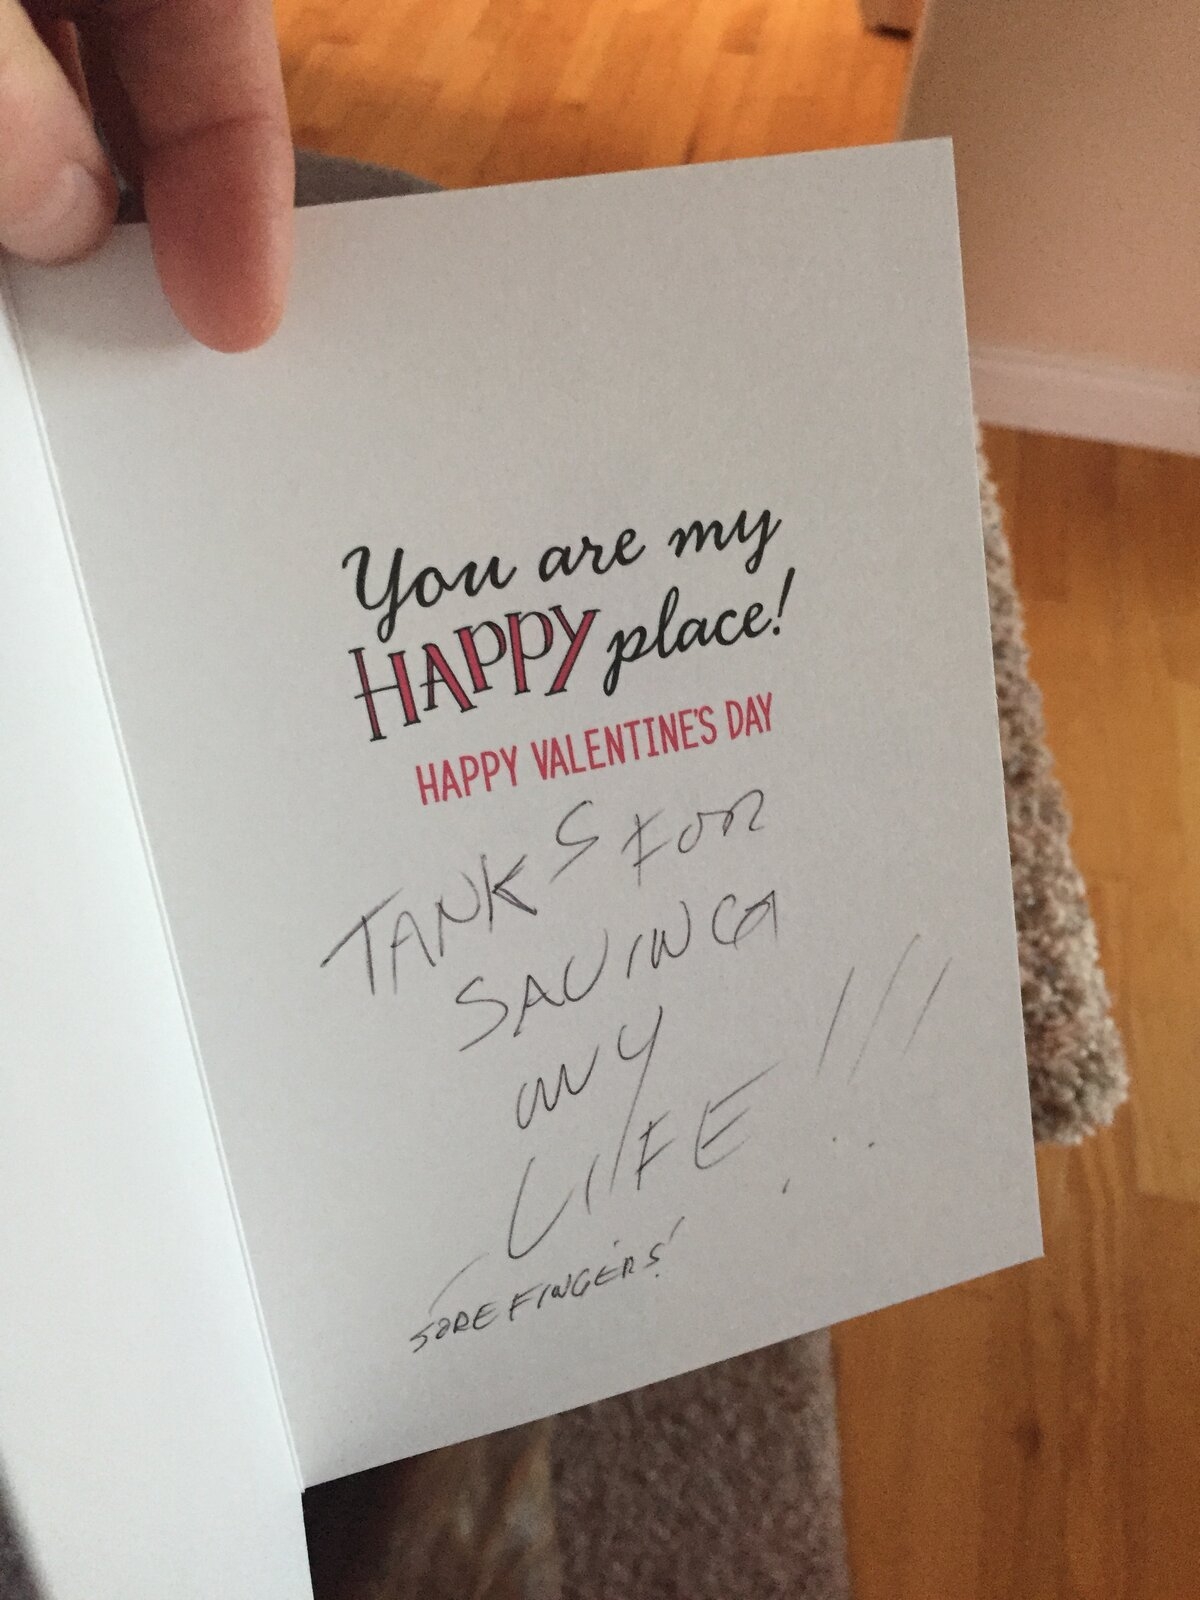 You are my
HAPPY place!
HAPPY VALENTINE'S DAY
TANKS FOR
SAVING
MY
LIFE!!!
SORE FINGERS!